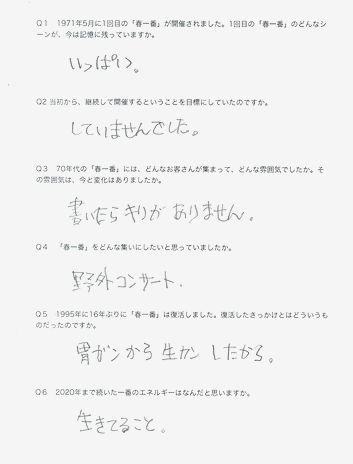 Q1　1971年5月に1回目の「春一番」が開催されました。1回目の「春一番」のどんなシ
ーンが、今は記憶に残っていますか。
いっぱい。
Q2 当初から、継続して開催するということを目標にしていたのですか。
していませんでした。
Q3　70年代の「春一番」には、どんなお客さんが集まって、どんな雰囲気でしたか。そ
の雰囲気は、今と変化はありましたか。
書いたらキリがありません。
Q4　「春一番」をどんな集いにしたいと思っていましたか。
野外コンサート.
Q5　1995年に16年ぶりに「春一番」は復活しました。復活したきっかけとはどういうも
のだったのですか。
胃ガンから生カンしたから。
Q6　2020年まで続いた一番のエネルギーはなんだと思いますか。
生きてること。